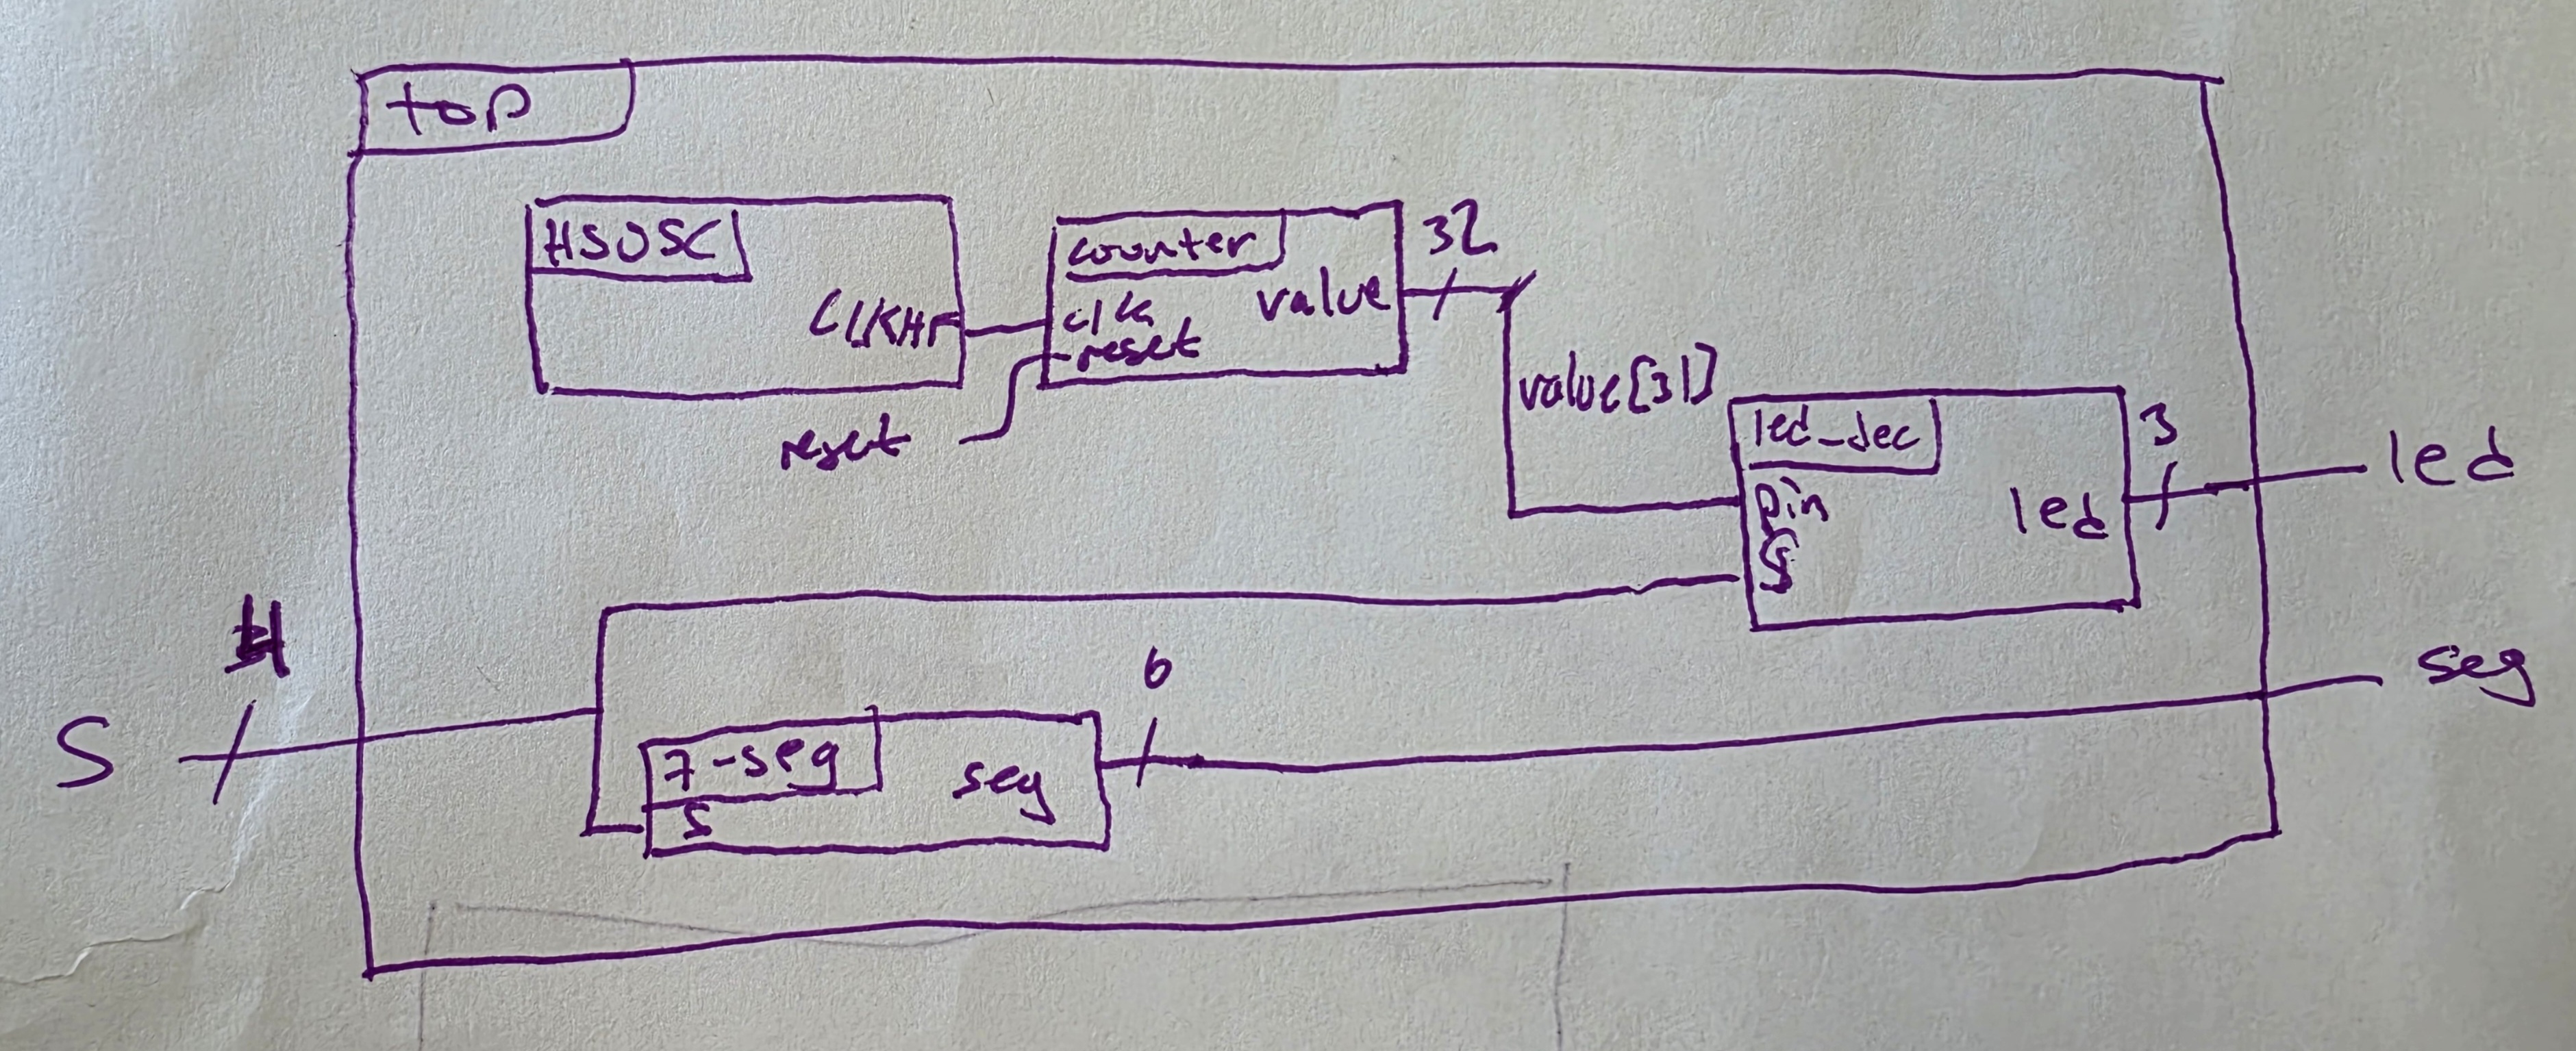 top
HSOSC
CLKHF
counter
clk
reset
value
32
reset
value[31]
led_dec
pin
S
led
3
led
S
7-seg
S
seg
6
seg